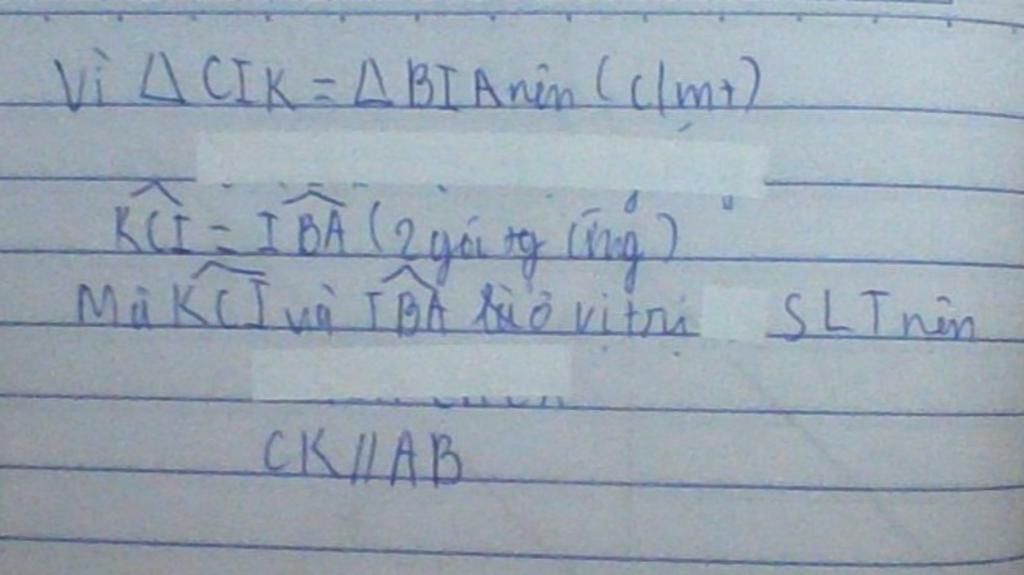 Vì Δ CIK = Δ BIA nên (c/mt)
KCI = IBA (2 góc tg ứng)
Mà KCI và IBA ở vị trí SLT nên
CK // AB